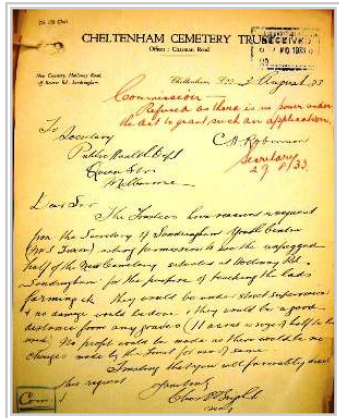 CHELTENHAM CEMETERY TRUST
Offices : Charman Road
New Cemetery, Holloway Road,
off Reserve Rd., Sandringham.
RECEIVED
Cheltenham, 3 August 33
Commissioner
Refused as there is no power under
the Act to grant such an application.
Secretary
29/8/33
To
Secretary
Public Health Dept
Queen St
Melbourne
Dear Sir
The Trustees have received a request
from the Secretary of Sandringham Youth Centre
asking permission to use the unpegged
half of the New Cemetery situated at Holloway Rd
Sandringham for the purpose of teaching the lads
farming etc they would be under strict supervision
& no damage would be done, & they would be a good
distance from any graves (11 acres
No profit would be made as there would be no
charges made by the Trust for use of same
Trusting that you will favourably
this request